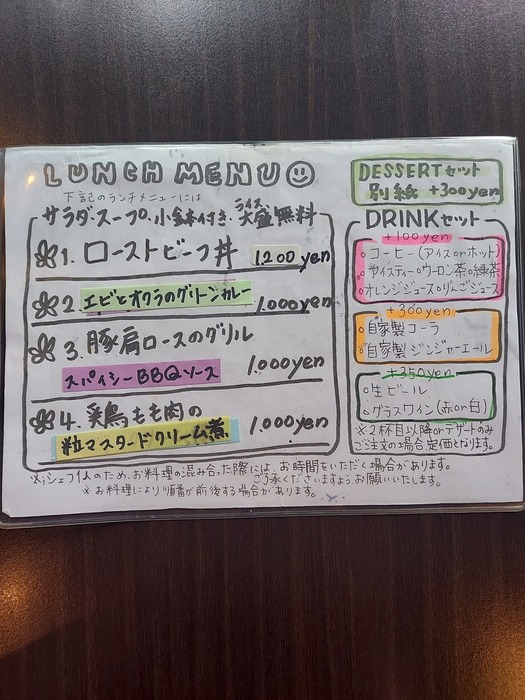 LUNCH MENU
下記のランチメニューには
サラダ、スープ、小鉢付き、ライス大盛無料
1. ローストビーフ丼 1.200yen
2. エビとオクラのグリーンカレー 1.000yen
3. 豚肩ロースのグリル
スパイシーBBQソース 1.000yen
4. 鶏もも肉の
粒マスタードクリーム煮 1.000yen
DESSERTセット
別紙 +300yen
DRINKセット
+100yen
コーヒー(アイスorホット)
アイスティー ウーロン茶 緑茶
オレンジジュース りんごジュース
+300yen
自家製コーラ
自家製ジンジャーエール
+350yen
生ビール
グラスワイン(赤or白)
※2杯目以降orデザートのみ
ご注文の場合定価となります。
※シェフ1人のため、お料理の混み合った際には、お時間をいただく場合があります。
ご了承くださいますようお願いいたします。
※お料理により順番が前後する場合があります。